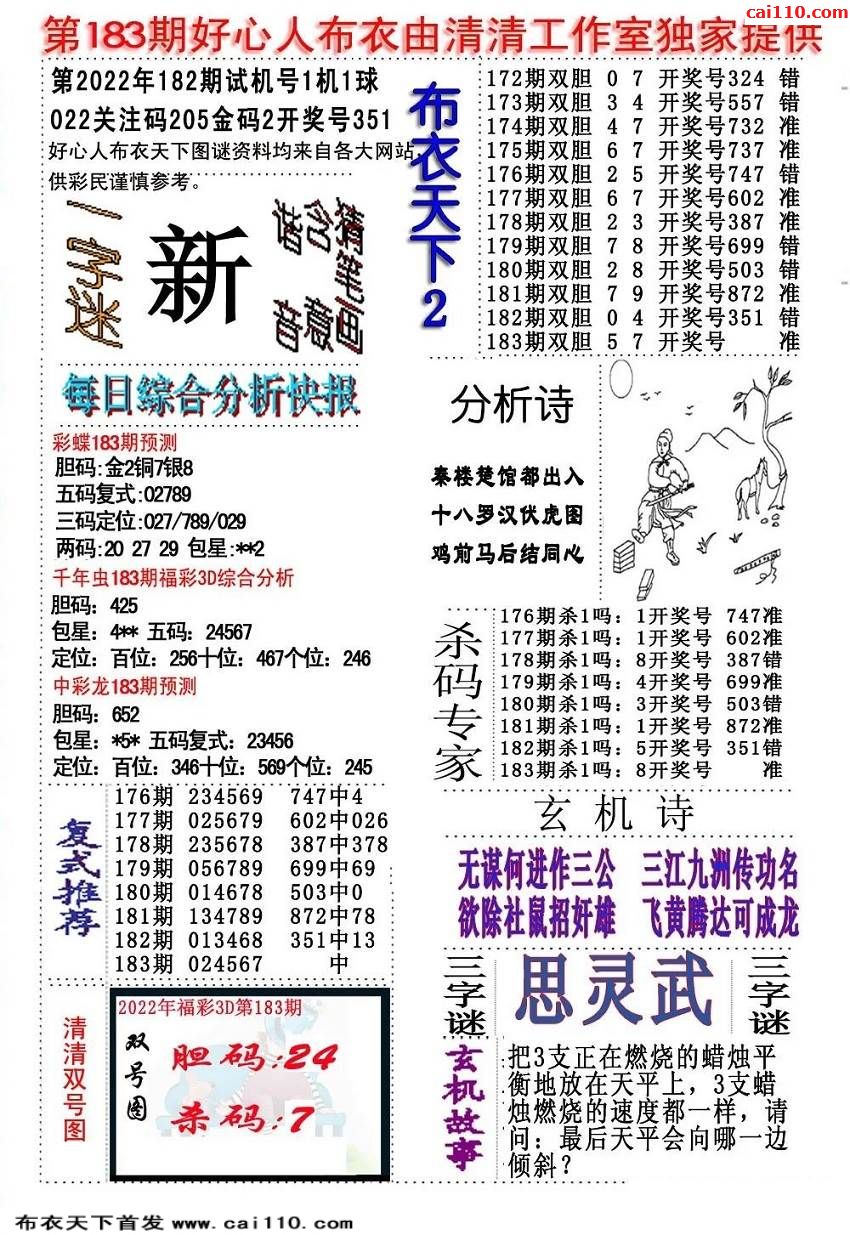 cai110.com
第183期好心人布衣由清清工作室独家提供
第2022年182期试机号1机1球
022关注码205金码2开奖号351
好心人布衣天下图谜资料均来自各大网站,
供彩民谨慎参考。
一字迷
新
猜笔画
含意
谐音
布衣天下2
172期双胆 0 7 开奖号324 错
173期双胆 3 4 开奖号557 错
174期双胆 4 7 开奖号732 准
175期双胆 6 7 开奖号737 准
176期双胆 2 5 开奖号747 错
177期双胆 6 7 开奖号602 准
178期双胆 2 3 开奖号387 准
179期双胆 7 8 开奖号699 错
180期双胆 2 8 开奖号503 错
181期双胆 7 9 开奖号872 准
182期双胆 0 4 开奖号351 错
183期双胆 5 7 开奖号 准
每日综合分析快报
彩蝶183期预测
胆码:金2铜7银8
五码复式:02789
三码定位:027/789/029
两码:20 27 29 包星:**2
千年虫183期福彩3D综合分析
胆码：425
包星：4** 五码：24567
定位：百位：256十位：467个位：246
中彩龙183期预测
胆码：652
包星：*5* 五码复式：23456
定位：百位：346十位：569个位：245
分析诗
秦楼楚馆都出入
十八罗汉伏虎图
鸡前马后结同心
杀码专家
176期杀1吗：1开奖号 747准
177期杀1吗：1开奖号 602准
178期杀1吗：8开奖号 387错
179期杀1吗：4开奖号 699准
180期杀1吗：3开奖号 503错
181期杀1吗：1开奖号 872准
182期杀1吗：5开奖号 351错
183期杀1吗：8开奖号 准
复式推荐
176期 234569 747中4
177期 025679 602中026
178期 235678 387中378
179期 056789 699中69
180期 014678 503中0
181期 134789 872中78
182期 013468 351中13
183期 024567 中
玄机诗
无谋何进作三公 三江九洲传功名
欲除社鼠招奸雄 飞黄腾达可成龙
三字谜
思灵武
三字谜
清清双号图
2022年福彩3D第183期
双号图
胆码:24
杀码:7
玄机故事
把3支正在燃烧的蜡烛平
衡地放在天平上，3支蜡
烛燃烧的速度都一样，请
问：最后天平会向哪一边
倾斜？
布衣天下首发 www.cai110.com